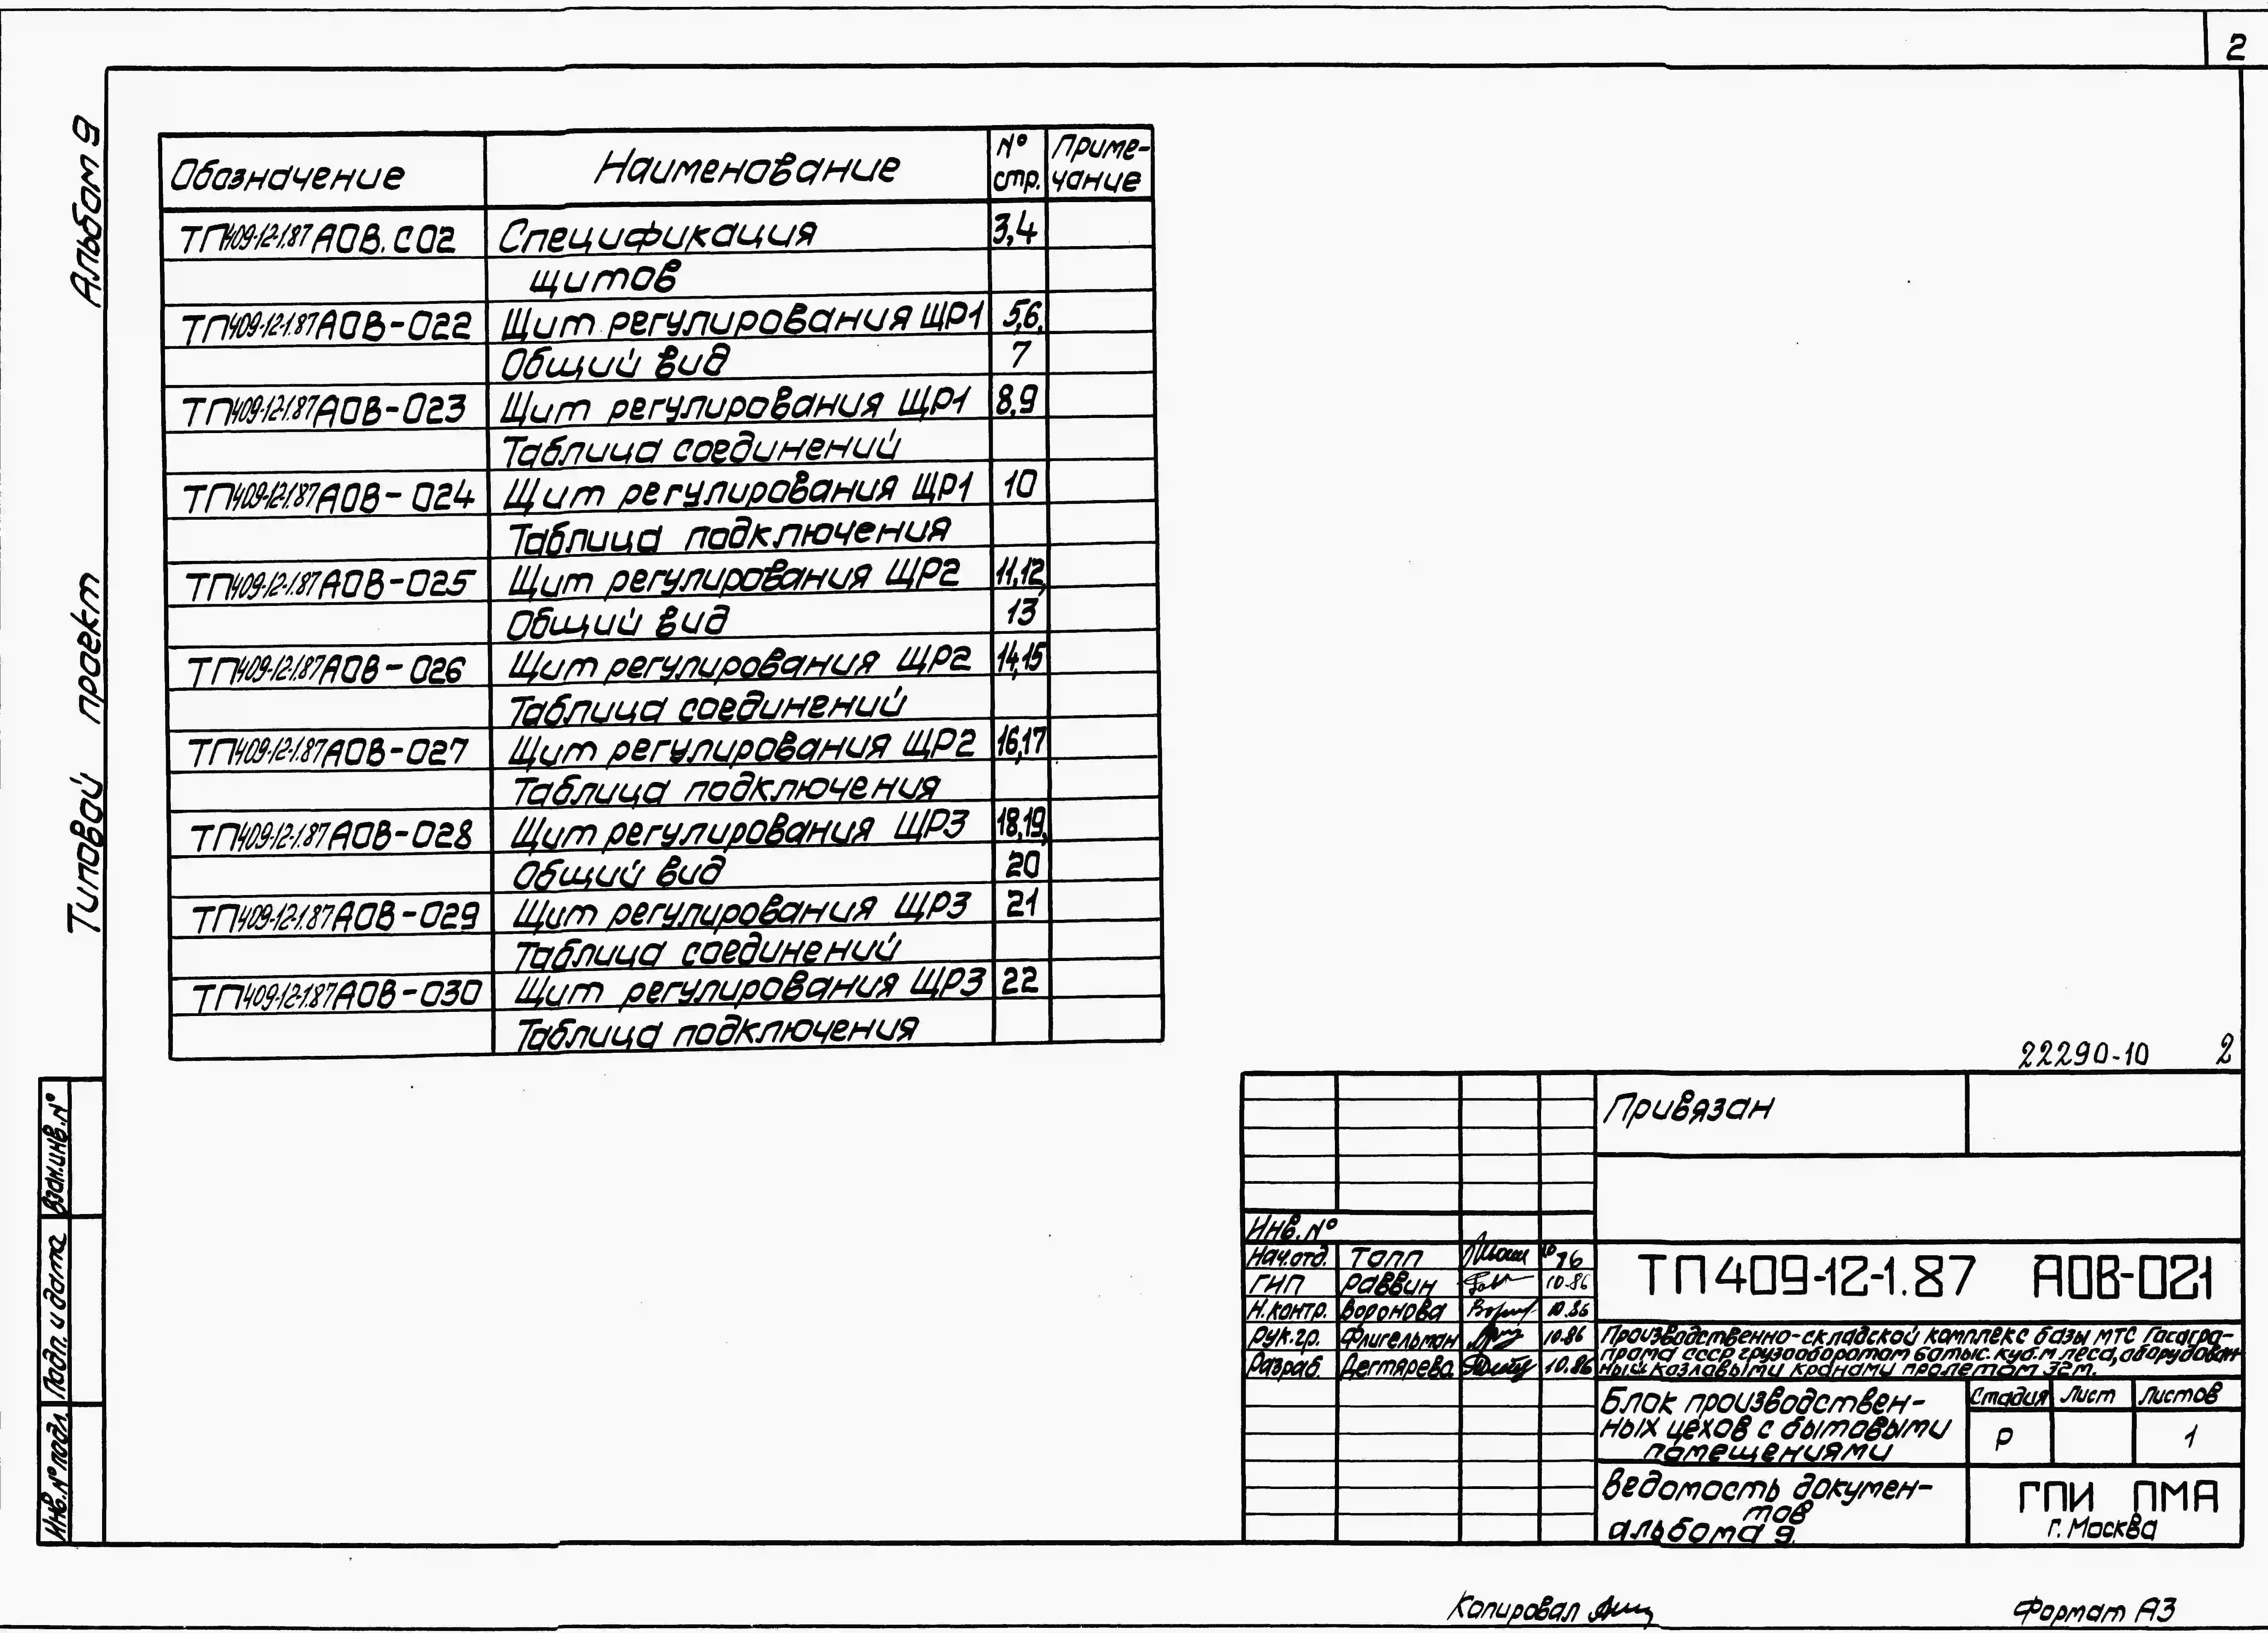 2
Альбом 9
Типовой проект
Обозначение Наименование № стр. Приме-чание
ТП 409-12-1.87 АОВ.СО2 Спецификация 3,4
щитов
ТП 409-12-1.87 АОВ-022 Щит регулирования ЩР1 5,6,
Общий вид 7
ТП 409-12-1.87 АОВ-023 Щит регулирования ЩР1 8,9
Таблица соединений
ТП 409-12-1.87 АОВ-024 Щит регулирования ЩР1 10
Таблица подключения
ТП 409-12-1.87 АОВ-025 Щит регулирования ЩР2 11,12,
Общий вид 13
ТП 409-12-1.87 АОВ-026 Щит регулирования ЩР2 14,15
Таблица соединений
ТП 409-12-1.87 АОВ-027 Щит регулирования ЩР2 16,17
Таблица подключения
ТП 409-12-1.87 АОВ-028 Щит регулирования ЩР3 18,19,
Общий вид 20
ТП 409-12-1.87 АОВ-029 Щит регулирования ЩР3 21
Таблица соединений
ТП 409-12-1.87 АОВ-030 Щит регулирования ЩР3 22
Таблица подключения
Взам.инв.№
Подп. и дата
Инв.№ подл.
22290-10 2
Привязан
Инв.№
Нач.отд. Топп
ГИП Раввин 10.86
Н.контр. Воронова 10.86
Рук.гр. Флигельман 10.86
Разраб. Дегтярева 10.86
ТП 409-12-1.87 АОВ-021
Производственно-складской комплекс базы МТС Госагро-
прома СССР грузооборотом 60тыс. куб.м леса, оборудован-
ный козловыми кранами пролетом 32м.
Блок производствен-
ных цехов с бытовыми
помещениями
Стадия Лист Листов
Р 1
Ведомость докумен-
тов
альбома 9.
ГПИ ПМА
г. Москва
Копировал
Формат А3